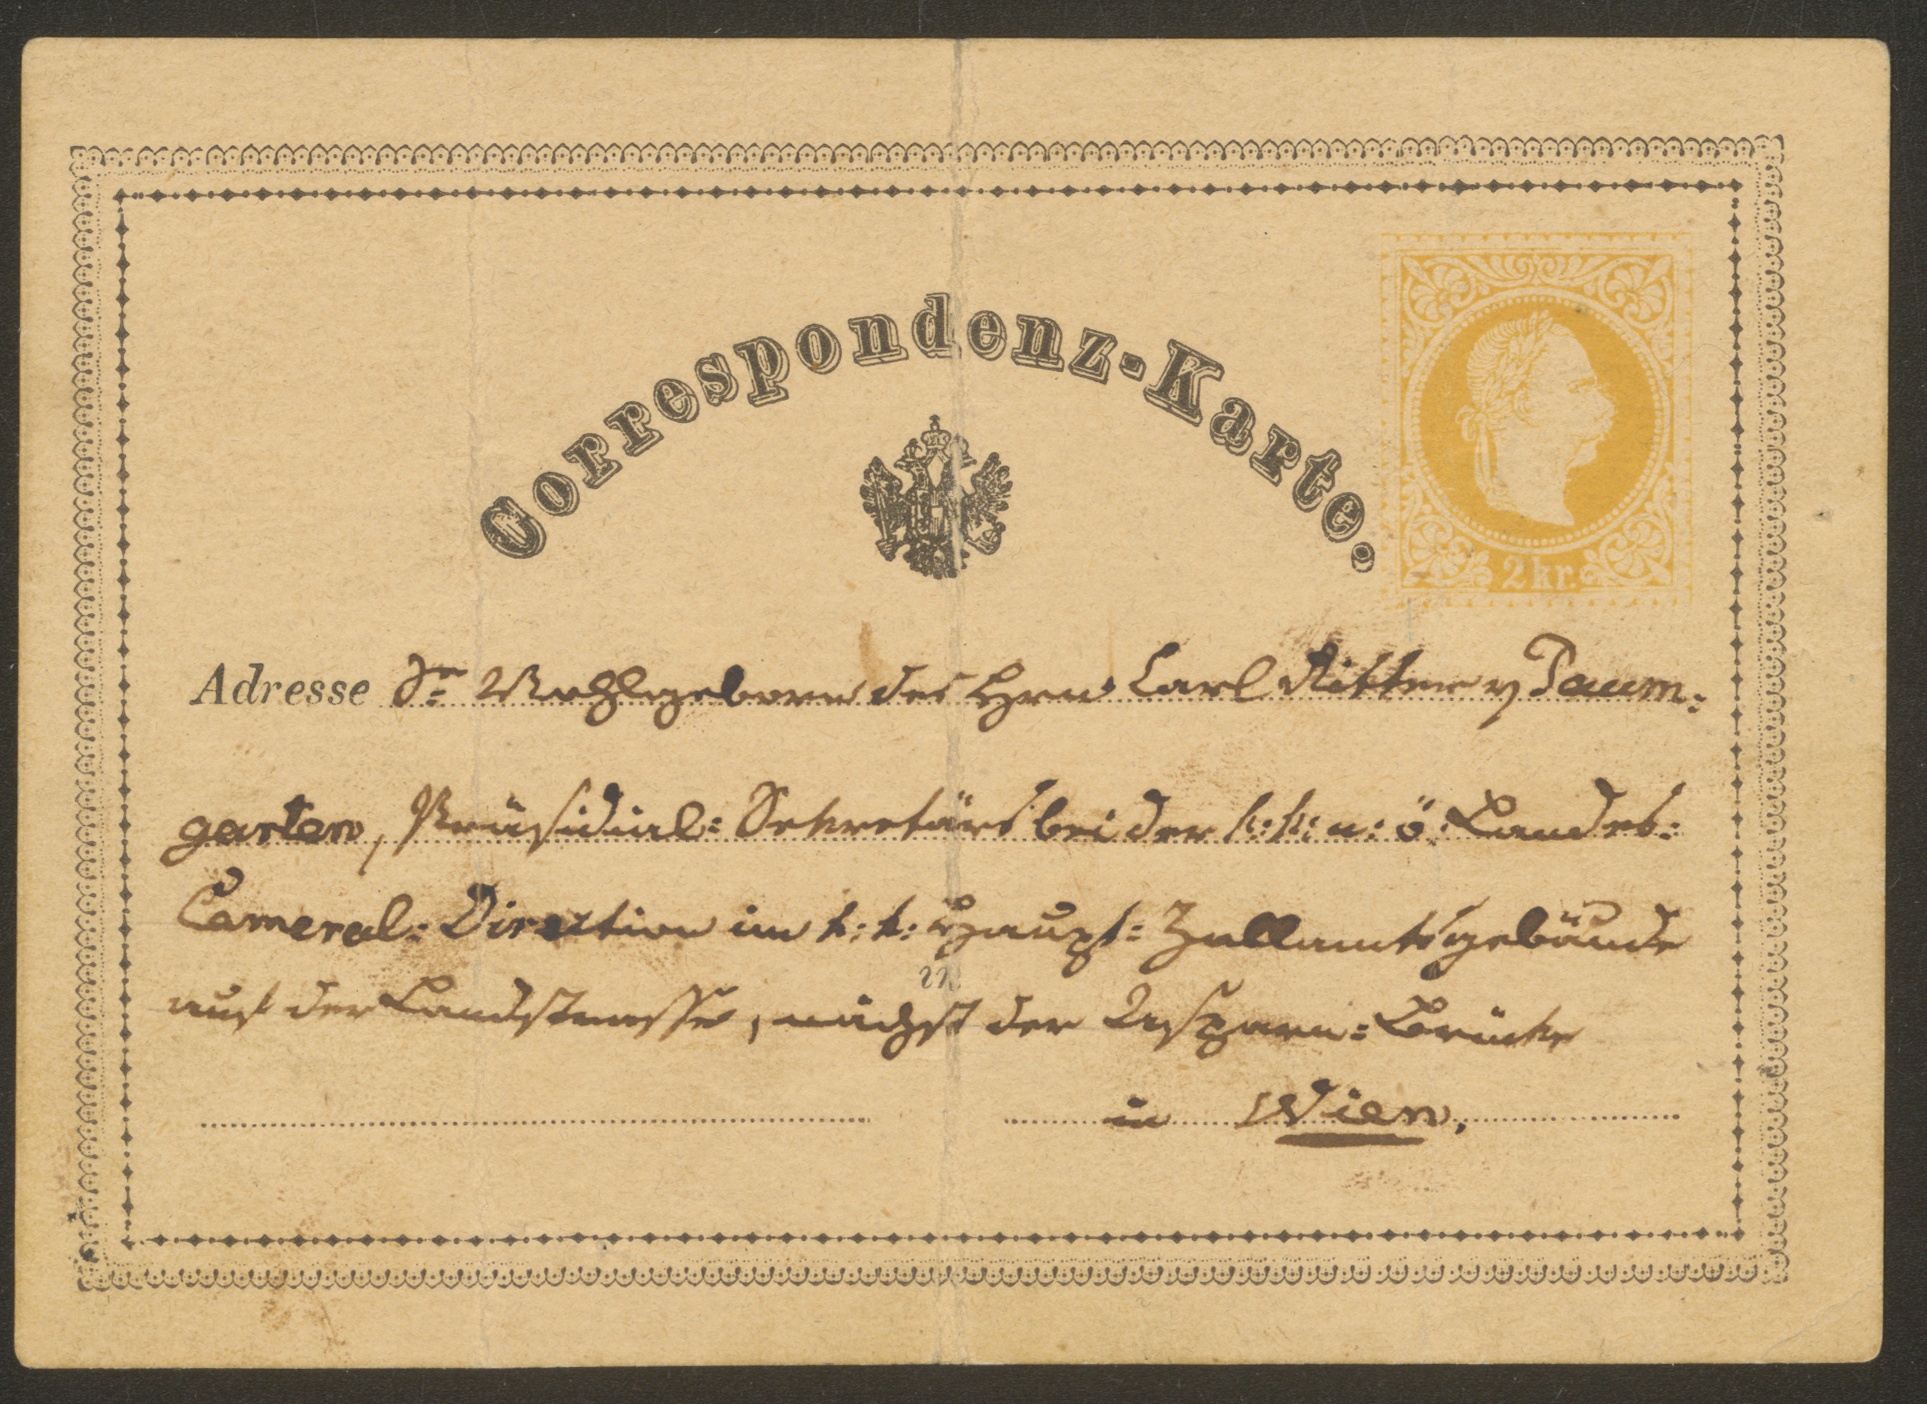 Correspondenz-Karte.
2 kr.
Adresse Sr Wohlgeboren des Hrn Carl Ritter v Paum:
garten, Präsidial: Sekretärs bei der k: k: n: ö: Landes:
Cameral: Direction im k: k: Haupt: Zollamtsgebäude
22
auf der Landstrasse, nächst der Aspern: Brücke
in Wien.